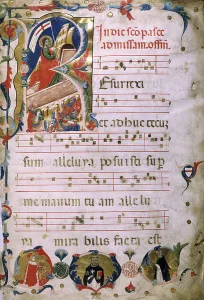 In die scō pasce
ad missam. offm̄.
Resurrexi
et adhuc tecu
sum alleluya posuisti sup
me manum tu am alle lu
ra mira bilis facta est